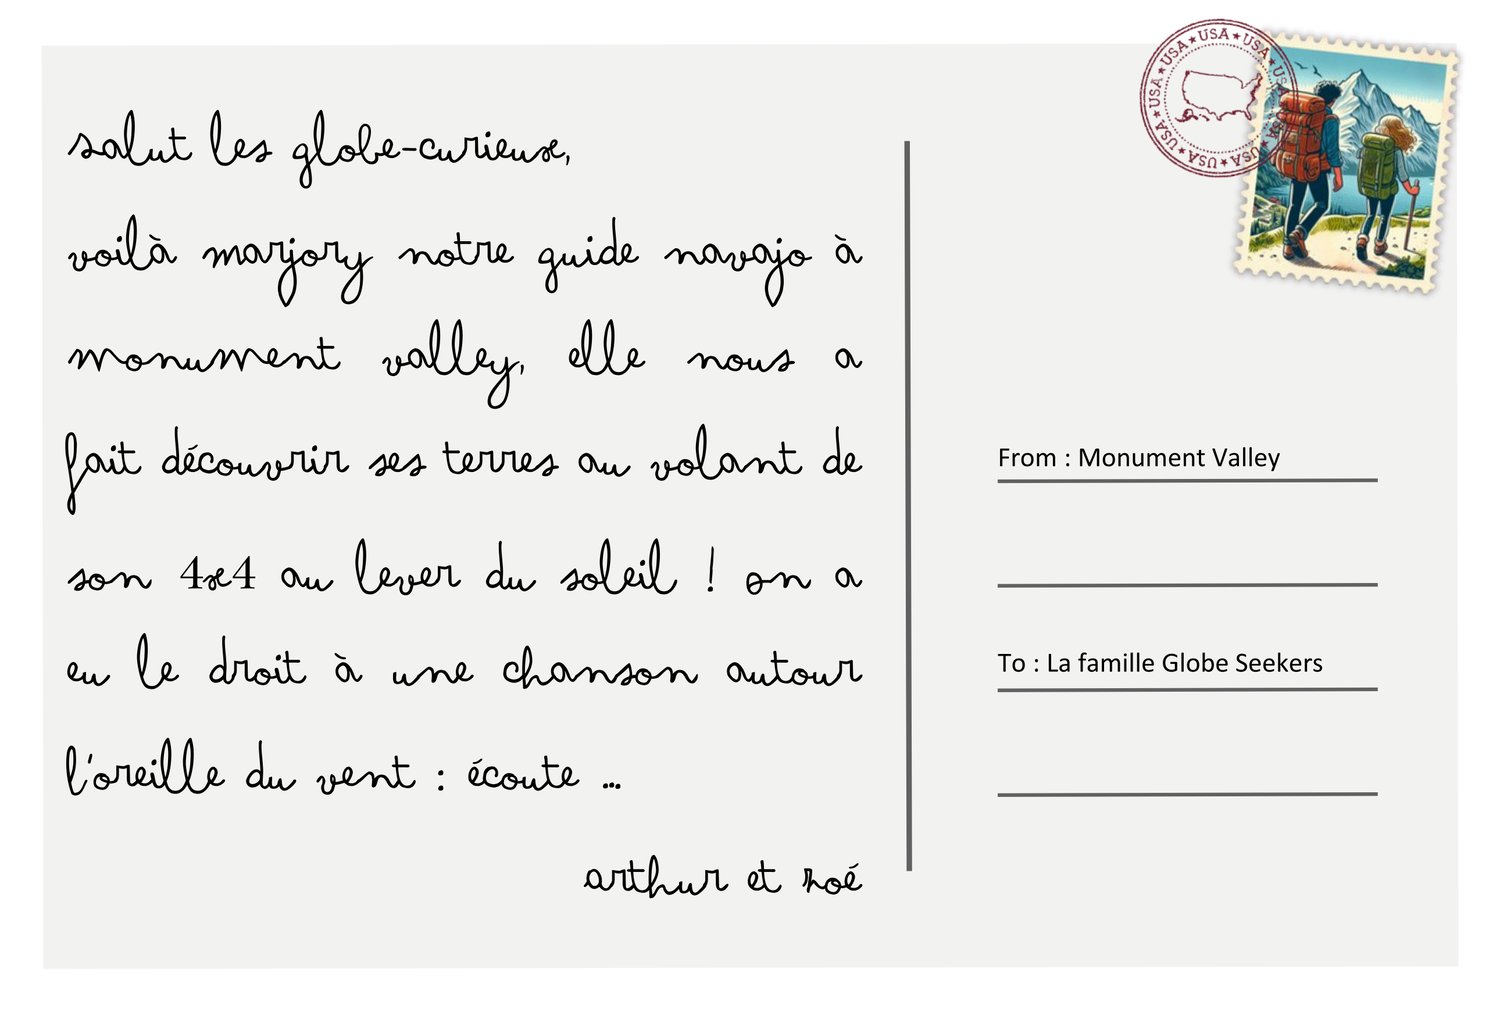 salut les globe-curieux,
voilà marjory notre guide navajo à
monument valley, elle nous a
fait découvrir ses terres au volant de
son 4x4 au lever du soleil ! on a
eu le droit à une chanson autour
l'oreille du vent : écoute ...
arthur et zoé
USA★USA★USA★USA★USA★USA★USA★USA★USA★USA
From : Monument Valley
To : La famille Globe Seekers